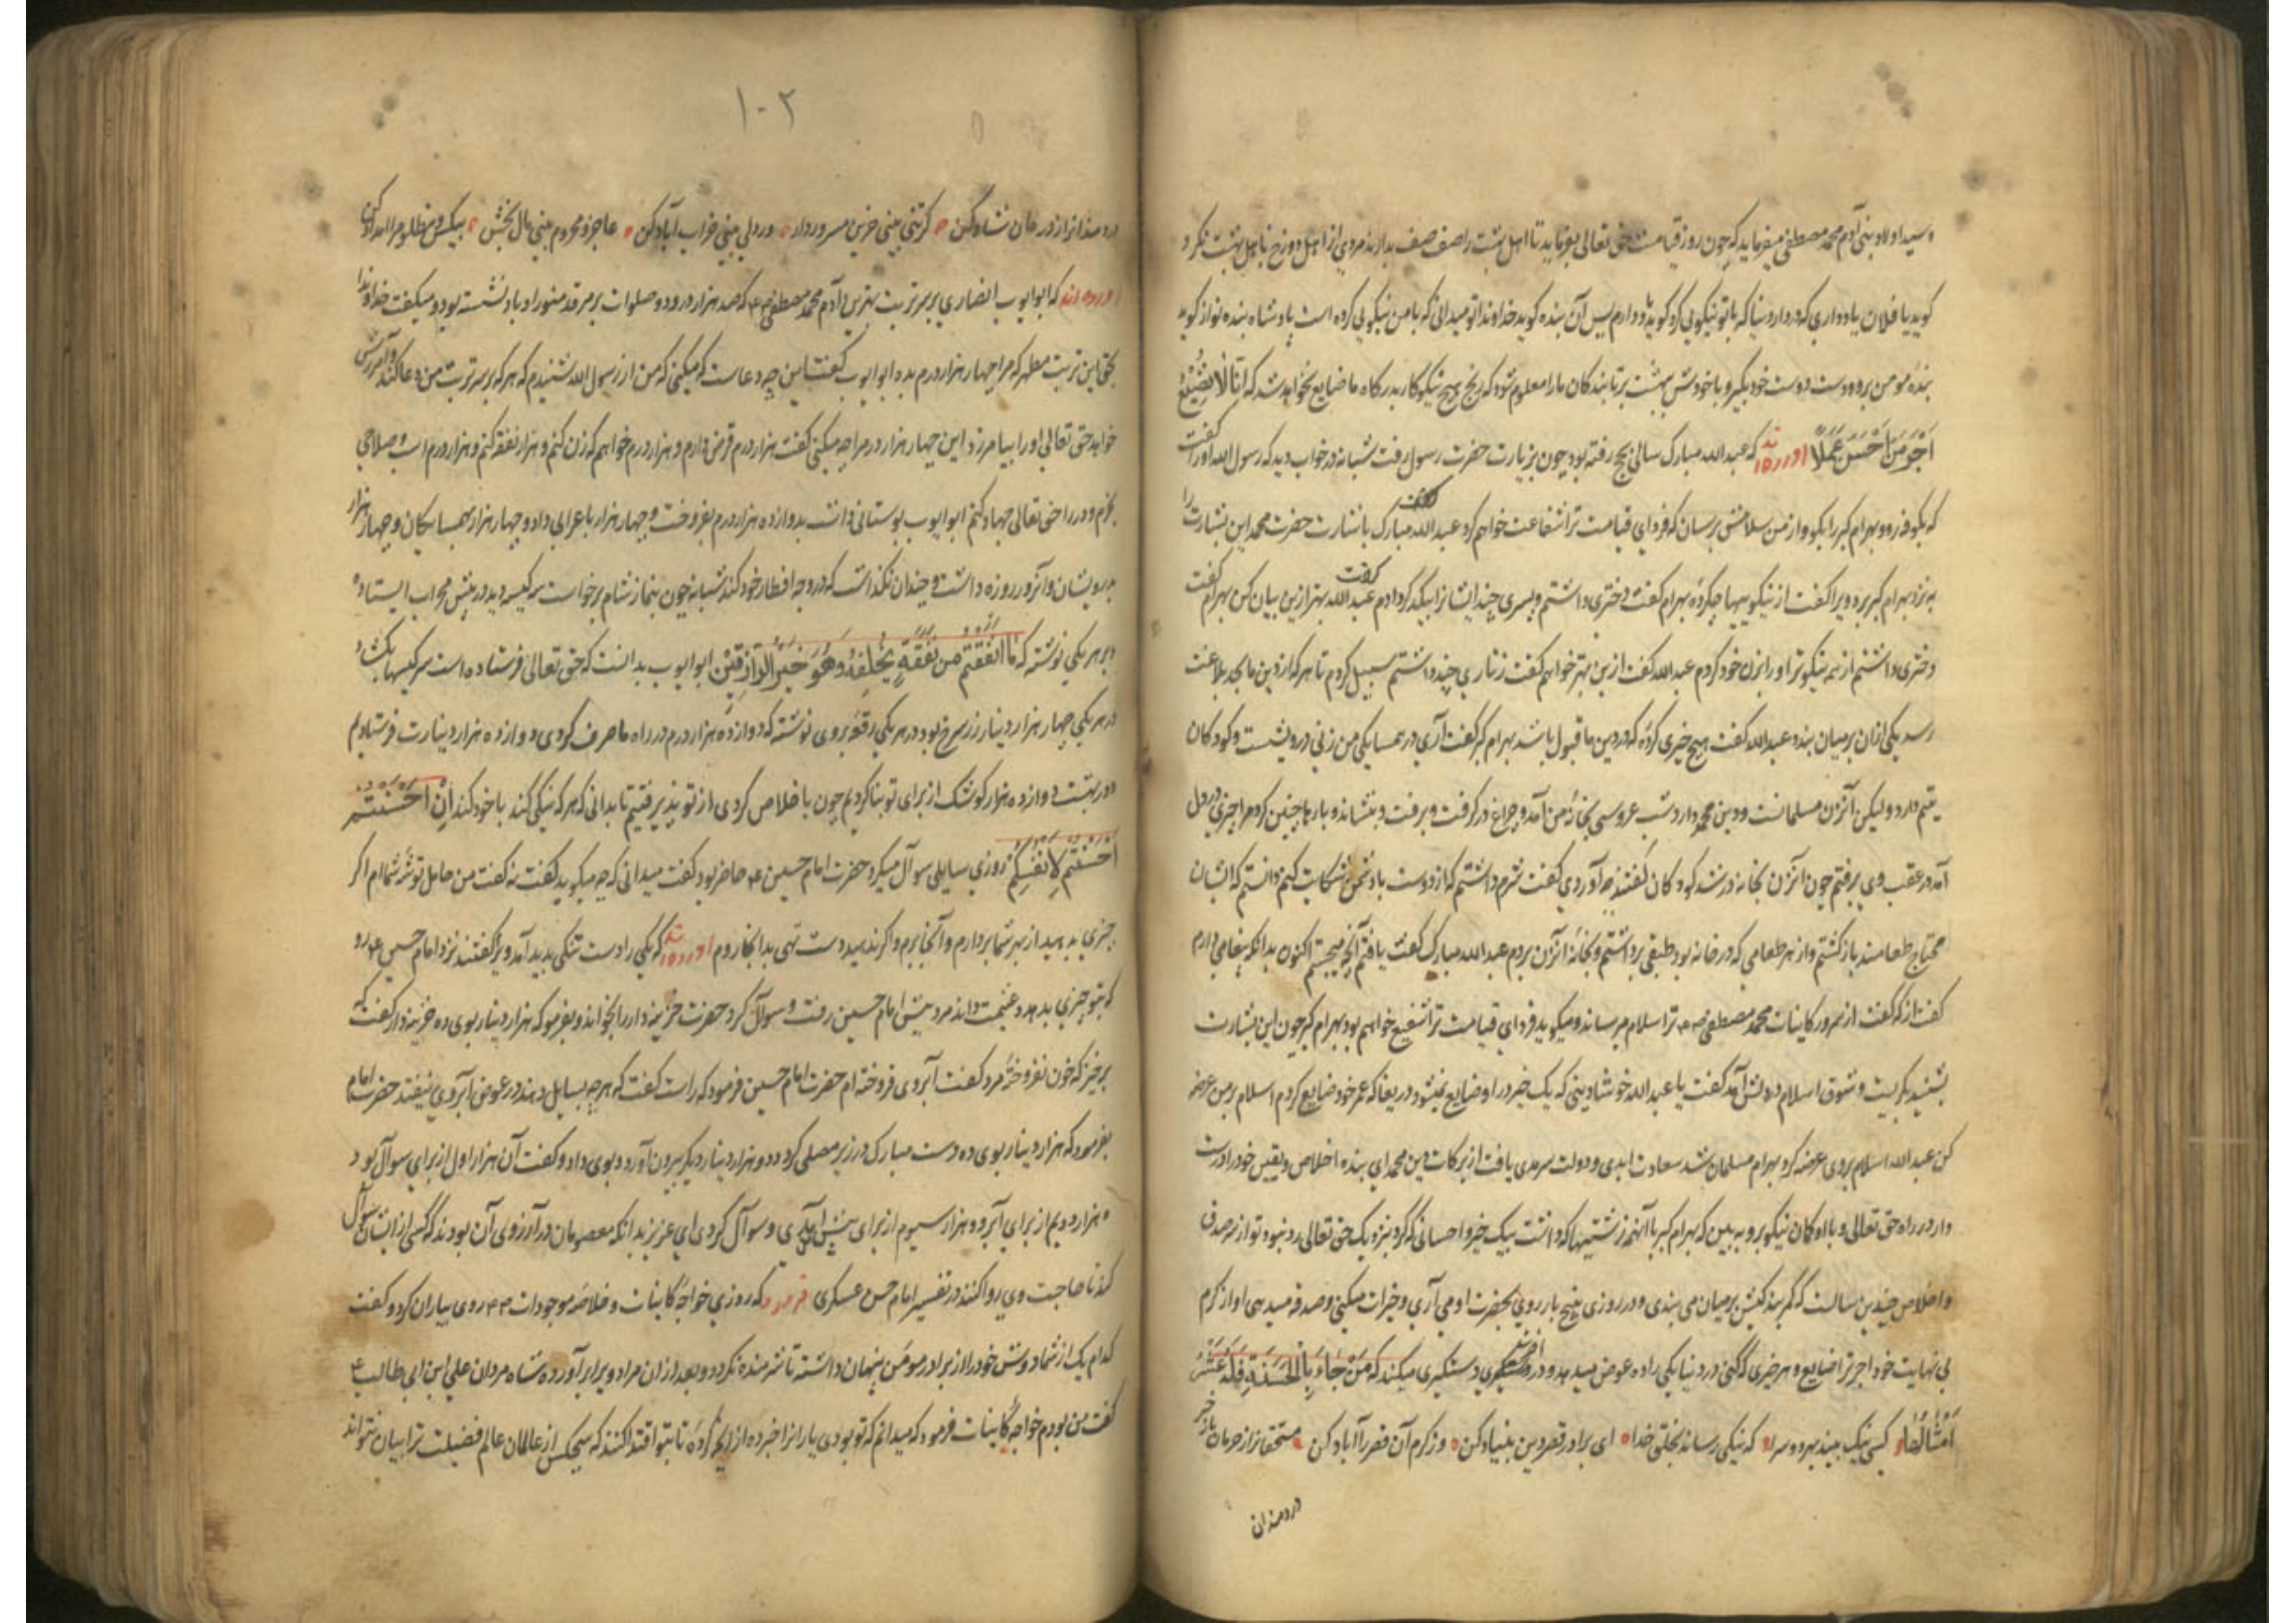 سید اولاد بنی آدم محمد مصطفی میفرماید که چون روز قیامت حق تعالی بفرماید تا اهل بهشت را صف صف بدارند مردی از اهل دوزخ باهل بهشت نکرد
کوید یا فلان یاد داری که در دار دنیا که با تو نیکویی کرد کوید دارم پس آن بنده کوید خداوندا تو میدانی که با من نیکویی کرده است پادشاه بنده نواز کوید
بنده مومن برو دست دوست خود بگیر و با خودش ببهشت بر تا بندکان ما را معلوم شود که رنج هیچ نیکوکار بدرکاه ما ضایع نخواهد شد که انا لا نضیع
اجر من احسن عملا اورده اند که عبدالله مبارک سالی بحج رفته بود چون بزیارت حضرت رسول رفت شبانه در خواب دید که رسول الله او را گفت
که بکوفه رو و بهرام کبر را بکو و از من سلامش برسان که فردای قیامت ترا شفاعت خواهم کرد عبدالله مبارک باشارت حضرت محمد این بشارت را
به نزد بهرام کبر برد ویرا کفت از نیکوییها چه کرده بهرام کفت دختری داشتم و پسری چند ایشانرا بیکدیکر دادم عبدالله کفت بهتر ازین بیان کن بهرام گفت
دختری داشتم از همه نیکوتر او را بزن خود کردم عبدالله کفت ازین بهتر خواهم کفت زناری چند داشتم سبیل کردم تا هر که از دین ما بحد بلاغت
رسد یکی ازان بر میان بندد عبدالله کفت هیچ خیری کرده که در دین ما قبول باشد بهرام کبر کفت آری در همسایکی من زنی درویشست و کودکان
یتیم دارد ولیکن آنزن مسلمانست و دین محمد دارد شب عروسی بخانه من آمد و چراغ در کرفت و برفت و بنشاند و بارها چنین کرد مرا چیزی در دل
آمد در عقب وی برفتم چون آنزن بخانه در شد کودکان کفتند چه آوردی کفت شرم داشتم که از دوست با دشمن شکایت کنم دانستم که ایشان
محتاج طعامند بازکشتم و از هر طعامی که در خانه بود طبقی برداشتم و بخانه آنزن بردم عبدالله مبارک گفت یافتم آنچه میجستم اکنون بدانکه پیغامی دارم
کفت از که گفت از سرور کاینات محمد مصطفی ص ترا سلام میرساند و میکوید فردای قیامت ترا شفیع خواهم بود بهرام کبر چون این بشارت
بشنید بکریست و شوق اسلام در دلش آمد کفت یا عبدالله خوشا دینی که یک خیر درو ضایع نمیشود دریغا که عمر خود ضایع کردم اسلام بر من عرضه
کن عبدالله اسلام بروی عرضه کرد بهرام مسلمان شد سعادت ابدی و دولت سرمدی یافت از برکات دین محمد ای بنده اخلاص و یقین خود را درست
دار در راه حق تعالی و با نیکو برو به بین که بهرام کبر با آنهمه زشتیها که داشت بیک خیر و احسانی که کرد نزدیک حق تعالی رد نبود تو از سر صدق
و اخلاص چندین سالست که کمر بندکیش بر میان می بندی و در روزی پنج بار روی بحضرت او می آری و خیرات میکنی و صدقه میدهی او از کرم
بی نهایت خود اجر ترا ضایع و هر خیری که کنی در دنیا یکی را ده عوض میدهد و در آخرت دستکیری میکند که من جاء بالحسنة فله عشر
امثالها کسی نیک بیند بهر دو سرا که نیکی رساند بخلق خدا ای برادر قصر دین بنیاد کن وز کرم آن قصر را آباد کن مستحقانرا ز حرمان باز خر
دردمندان
۱۰۲
دردمندانرا ز درمان شاد کن کر تنی بینی حزین مسرور دار ور دلی بینی خراب آباد کن عاجز و محروم بینی مال بخش بیکس و مظلوم را امداد کن
اورده اند که ابو ایوب انصاری بر سر تربت بهترین آدم محمد مصطفی که صد هزار درود و صلوات بر مرقد منور او باد نشسته بود و میکفت خداوندا
بحق این تربت مطهر که مرا چهار هزار درم بده ابو ایوب کفت این چه دعاست که میکنی که من از رسول الله شنیدم که هر که بر سر تربت من دعا کند و آمرزش
خواهد حق تعالی او را بیامرزد این چهار هزار درم را چه میکنی کفت هزار درم قرض دارم و هزار درم خواهم که زن کنم و هزار نفقه کنم و هزار درم اسب و سلاحی
بخرم و در راه حق تعالی جهاد کنم ابو ایوب بوستانی داشت بدوازده هزار درم بفروخت و چهار هزار باعرابی داد و چهار هزار بهمسایکان و چهار هزار
بدرویشان و آنروز روزه داشت و چندان نکذاشت که در وجه افطار خود کند شبانه چون بنماز شام برخاست سه کیسه دید در پیش محراب ایستاده
و بر هر یکی نوشته که ما انفقتم من نفقة یخلفه وهو خیر الرازقین ابو ایوب بدانست که حق تعالی فرستاده است سر کیسها بکشاد
در هر یکی چهار هزار دینار زر سرخ بود در هر یکی رقعه بروی نوشته که دوازده هزار درم در راه ما صرف کردی دوازده هزار دینارت فرستادم
در بهشت دوازده هزار کوشک از برای تو بنا کردیم چون باخلاص کردی از تو پذیرفتیم تا بدانی که هر که نیکی کند با خود کند ان احسنتم
احسنتم لانفسکم روزی سایلی سوآل میکرد حضرت امام حسین حاضر بود کفت میدانی که چه میکوید کفت نه کفت من حامل توشه شماام اکر
چیزی بدهید از بهر شما بردارم و آنجا برم و اکر ندهید دست تهی بدانجا روم اورده اند که یکی را دست تنکی پدید آمد ویرا کفتند نزد امام حسین رو
که بتو چیزی بدهد و غنیمت داند مرد پیش امام حسین رفت و سوآل کرد حضرت خزینه دار را بخواند و بفرمود که هزار دینار بوی ده خزینه دار کفت که
برخیز که خون نفروخته مرد کفت آبروی فروخته ام حضرت امام حسین فرمود که راست کفت که هرچه بسایل دهند در عوض آبروی نیفتد حضرت امام
بفرمود که هزار دینار بوی ده دست مبارک در زیر مصلی کرد و دو هزار دینار دیکر بیرون آورد و بوی داد و کفت آن هزار اول از برای سوآل بود
و هزار دویم از برای آبرو و هزار سیوم از برای پیش آمدی و سوآل کردی ای عزیز بدانکه معصومان در آرزوی آن بودند که کسی از ایشان سوآل
کند تا حاجت وی روا کنند در تفسیر امام حسن عسکری که روزی خواجه کاینات و خلاصه موجودات روی بیاران کرد و کفت
کدام یک از شما دوش خود را از برادر مومن پنهان داشته تا شرمنده نکردد و بعد ازان مراد ویرا برآورده شاه مردان علی ابن ابی طالب
کفت من بودم خواجه کاینات فرمود که میدانم که تو بودی یارانرا خبر ده از آنچه کرده تا بتو اقتدا کنند که هیچکس از عالمان عالم فضیلت ترا بیان نتواند